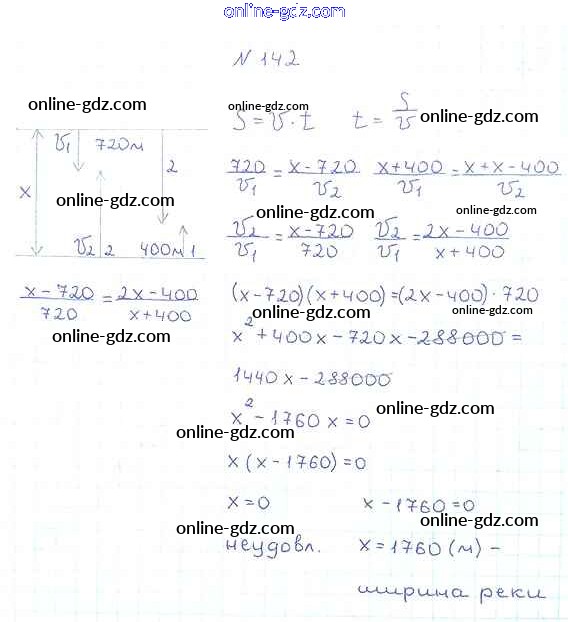 online-gdz.com
N 142
online-gdz.com
V₁ 720м
2
x
online-gdz.com
V₂ 2 400м 1
online-gdz.com
S = V · t t = S/V
online-gdz.com
720/V₁ = x-720/V₂ x+400/V₁ = x+x-400/V₂
online-gdz.com online-gdz.com
V₂/V₁ = x-720/720 V₂/V₁ = 2x-400/x+400
x-720/720 = 2x-400/x+400
online-gdz.com
(x-720)(x+400)=(2x-400)·720
online-gdz.com online-gdz.com
x²+400x-720x-288000=
1440x-288000
x²-1760x=0
online-gdz.com
online-gdz.com
x(x-1760)=0
x=0 x-1760=0
online-gdz.com online-gdz.com
неудовл. x=1760(м) -
ширина реки
online-gdz.com